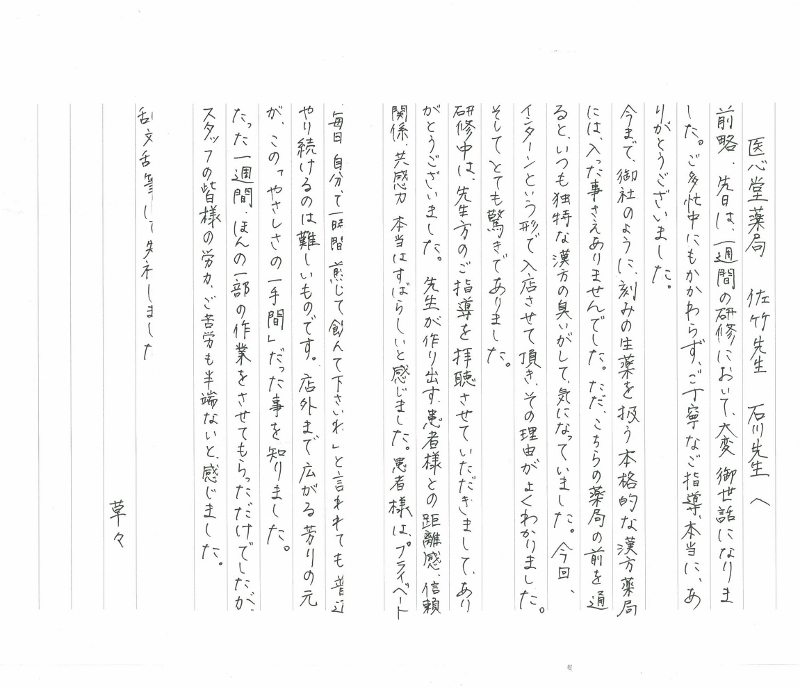 医心堂薬局　佐竹先生　石川先生へ
前略、先日は、一週間の研修において、大変 御世話になりま
した。ご多忙中にもかかわらず、ご丁寧なご指導、本当に、あ
りがとうございました。
今まで、御社のように、刻みの生薬を扱う本格的な漢方薬局
には、入った事さえありませんでした。ただ、こちらの薬局の前を通
ると、いつも独特な漢方の臭いがして、気になっていました。今回、
インターンという形で入店させて頂き、その理由がよくわかりました。
そして、とても驚きでありました。
研修中は、先生方のご指導を拝聴させていただきまして、あり
がとうございました。先生が作り出す、患者様との距離感、信頼
関係、共感力 本当はすばらしいと感じました。患者様は、プライベート
毎日 自分で一時間 煎じて飲んで下さいね」と言われても 普通
やり続けるのは難しいものです。店外まで広がる芳りの元
が、この「やさしさの一手間」だった事を知りました。
たった一週間、ほんの一部の作業をさせてもらっただけでしたが、
スタッフの皆様の労力、ご苦労も半端ないと、感じました。
乱文乱筆にて失礼しました
草々